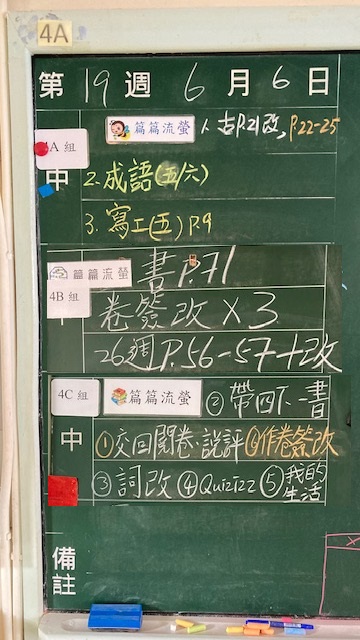 4A
第 19 週 6 月 6 日
4A 組
篇篇流螢 1. 古P.21改, P.22-25
中 2.成語(五/六)
3.寫工(五)P.9
篇篇流螢 書P.71
4B 組 卷簽改×3
26週P.56-57+改
4C 組 篇篇流螢 ②帶四下一書
中 ①交回閱卷.說評 ⑥作卷簽改
③詞改 ④Quizizz ⑤我的生活
備註